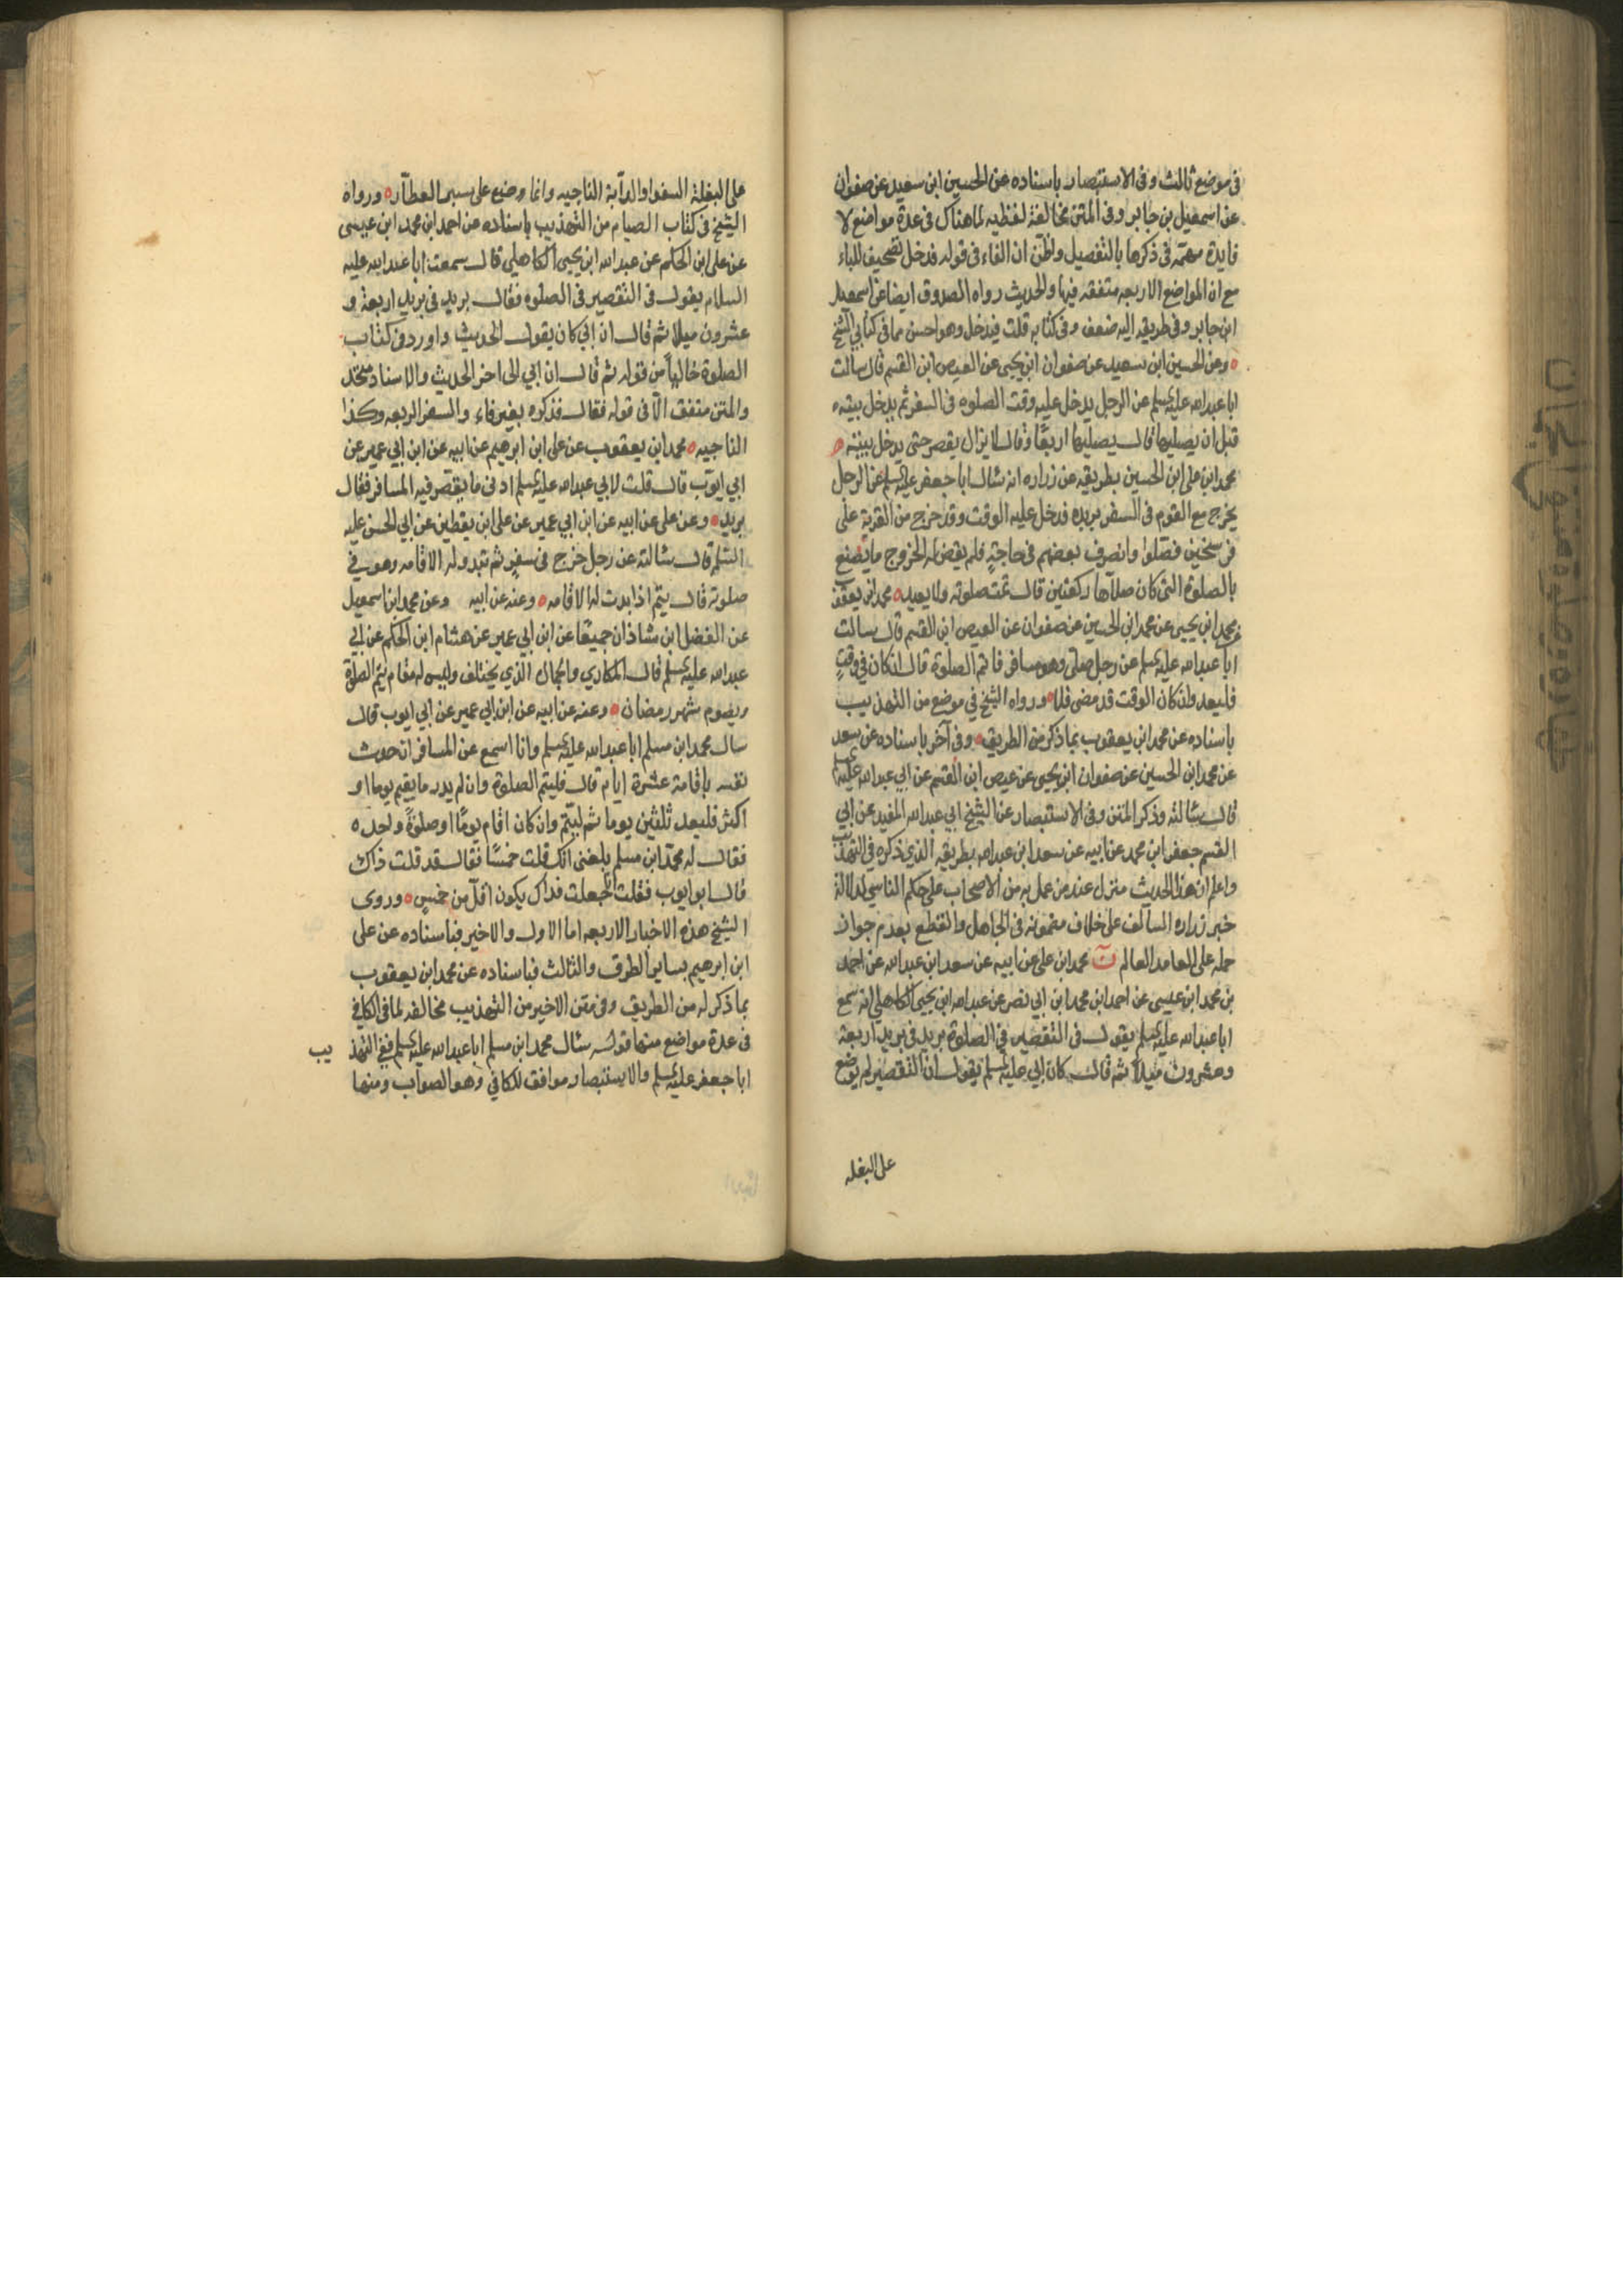 في موضع ثالث وفي الاستبصار باسناده عن الحسين ابن سعيد عن صفوان
عن اسمعيل بن جابر وفي المتن مخالفة لفظيه لما هناك في عدة مواضع لا
فايدة مهمّه في ذكرها بالتفصيل واظن ان الفاء في قوله فدخل تصحيف للباء
مع ان المواضع الاربعه متفقه فيها والحديث رواه الصدوق ايضا عن اسمعيل
ابن جابر وفي طريقه اليه ضعف وفي كتابه قلت فيدخل وهو احسن مما في كتابي الشيخ
وعن الحسين ابن سعيد عن صفوان ابن يحيى عن العيص ابن القسم قال سالت
ابا عبدالله عليه السلم عن الرجل يدخل عليه وقت الصلوه في السفر ثم يدخل بيته
قبل ان يصليها قال يصليها اربعًا وقال لا يزال يقصر حتى يدخل بيته
محمد ابن على ابن الحسين بطريقه عن زراره انه سال ابا جعفر عليه السلم عن الرجل
يخرج مع القوم في السفر يريده فدخل عليه الوقت وقد خرج من القرية على
فرسخين فصلوا وانصرف بعضهم في حاجةٍ فلم يقض له الخروج ما يصنع
بالصلوة التي كان صلاها ركعتين قال تمت صلوته ولا يعيد محمد ابن يعقوب
عن محمد ابن يحيى عن محمد ابن الحسين عن صفوان عن العيص ابن القسم قال سالت
ابا عبدالله عليه السلم عن رجل صلى وهو مسافر فاتم الصلوة قال ان كان في وقتٍ
فليعد وان كان الوقت قد مضى فلا ورواه الشيخ في موضع من التهذيب
باسناده عن محمد ابن يعقوب بما ذكر من الطريق وفي آخر باسناده عن سعد
عن محمد ابن الحسين عن صفوان ابن يحيى عن عيص ابن القسم عن ابي عبدالله عليه السلم
قال سالته وذكر المتن وفي الاستبصار عن الشيخ ابي عبدالله المفيد عن ابي
القسم جعفر ابن محمد عن ابيه عن سعد ابن عبدالله بطريقه الذي ذكره في التهذيب
واعلم ان هذا الحديث منزل عند من عمل به من الاصحاب على حكم الناسي لدلالة
خبر زراره السالف على خلاف مضمونه في الجاهل والقطع بعدم جواز
حمله على العامد العالم ن محمد ابن على عن ابيه عن سعد ابن عبدالله عن احمد
بن محمد ابن عيسى عن احمد ابن محمد ابن ابي نصر عن عبدالله ابن يحيى الكاهلي انه سمع
ابا عبدالله عليه السلم يقول في التقصير في الصلوة بريد في بريد اربعة
وعشرون ميلاً ثم قال كان ابي عليه السلم يقول ان التقصير لم يوضع
على البغله
على البغلة السفوا والدآبة الناجيه وانما وضع على سير القطآر ورواه
الشيخ في كتاب الصيام من التهذيب باسناده عن احمد ابن محمد ابن عيسى
عن على ابن الحكم عن عبدالله ابن يحيى الكاهلي قال سمعت ابا عبدالله عليه
السلام يقول في التقصير في الصلوه فقال بريد في بريد اربعة و
عشرون ميلا ثم قال ان ابي كان يقول الحديث واورد في كتاب
الصلوة خاليًا من قوله ثم قال ان ابي الى اخر الحديث والاسناد متحد
والمتن متفق الّا في قوله فقال فذكره بغير فاء والسفر الربعه وكذا
الناجيه محمد ابن يعقوب عن على ابن ابرهيم عن ابيه عن ابن ابي عمير عن
ابي ايّوب قال قلت لابي عبدالله عليه السلم ادنى ما يقصر فيه المسافر فقال
بريد وعن على عن ابيه عن ابن ابي عمير عن على ابن يقطين عن ابي الحسن عليه
السلم قال سالته عن رجل خرج في سفرٍ ثم تبدو له الاقامه وهو في
صلوته قال يتم اذا بدت له الاقامه وعنه عن ابيه وعن محمد ابن اسمعيل
عن الفضل ابن شاذان جميعًا عن ابن ابي عمير عن هشام ابن الحكم عن ابي
عبدالله عليه السلم قال المكاري والجمال الذي يختلف وليس له مقام يتم الصلوة
ويصوم شهر رمضان وعنه عن ابيه عن ابن ابي عمير عن ابي ايوب قال
سال محمد ابن مسلم ابا عبدالله عليه السلم وانا اسمع عن المسافر ان حدث
نفسه باقامة عشرة ايام قال فليتم الصلوة وان لم يدر ما يقيم يوما او
اكثر فليعد ثلثين يوما ثم ليتم وان كان اقام يومًا او صلوةً واحده
فقال له محمّد ابن مسلم بلغنى انك قلت خمسًا فقال قد قلت ذاك
قال ابو ايوب فقلت انا جعلت فداك يكون اقل من خمسٍ وروى
الشيخ هذه الاخبار الاربعه اما الاول والاخير فباسناده عن على
ابن ابرهيم بساير الطرق والثالث فباسناده عن محمد ابن يعقوب
بما ذكر له من الطريق وفي متن الاخير من التهذيب مخالفه لما في الكافي
في عدة مواضع منها قوله سال محمد ابن مسلم ابا عبدالله عليه السلم ففي التهذيب
ابا جعفر عليه السلم والاستبصار موافق للكافي وهو الصواب ومنها